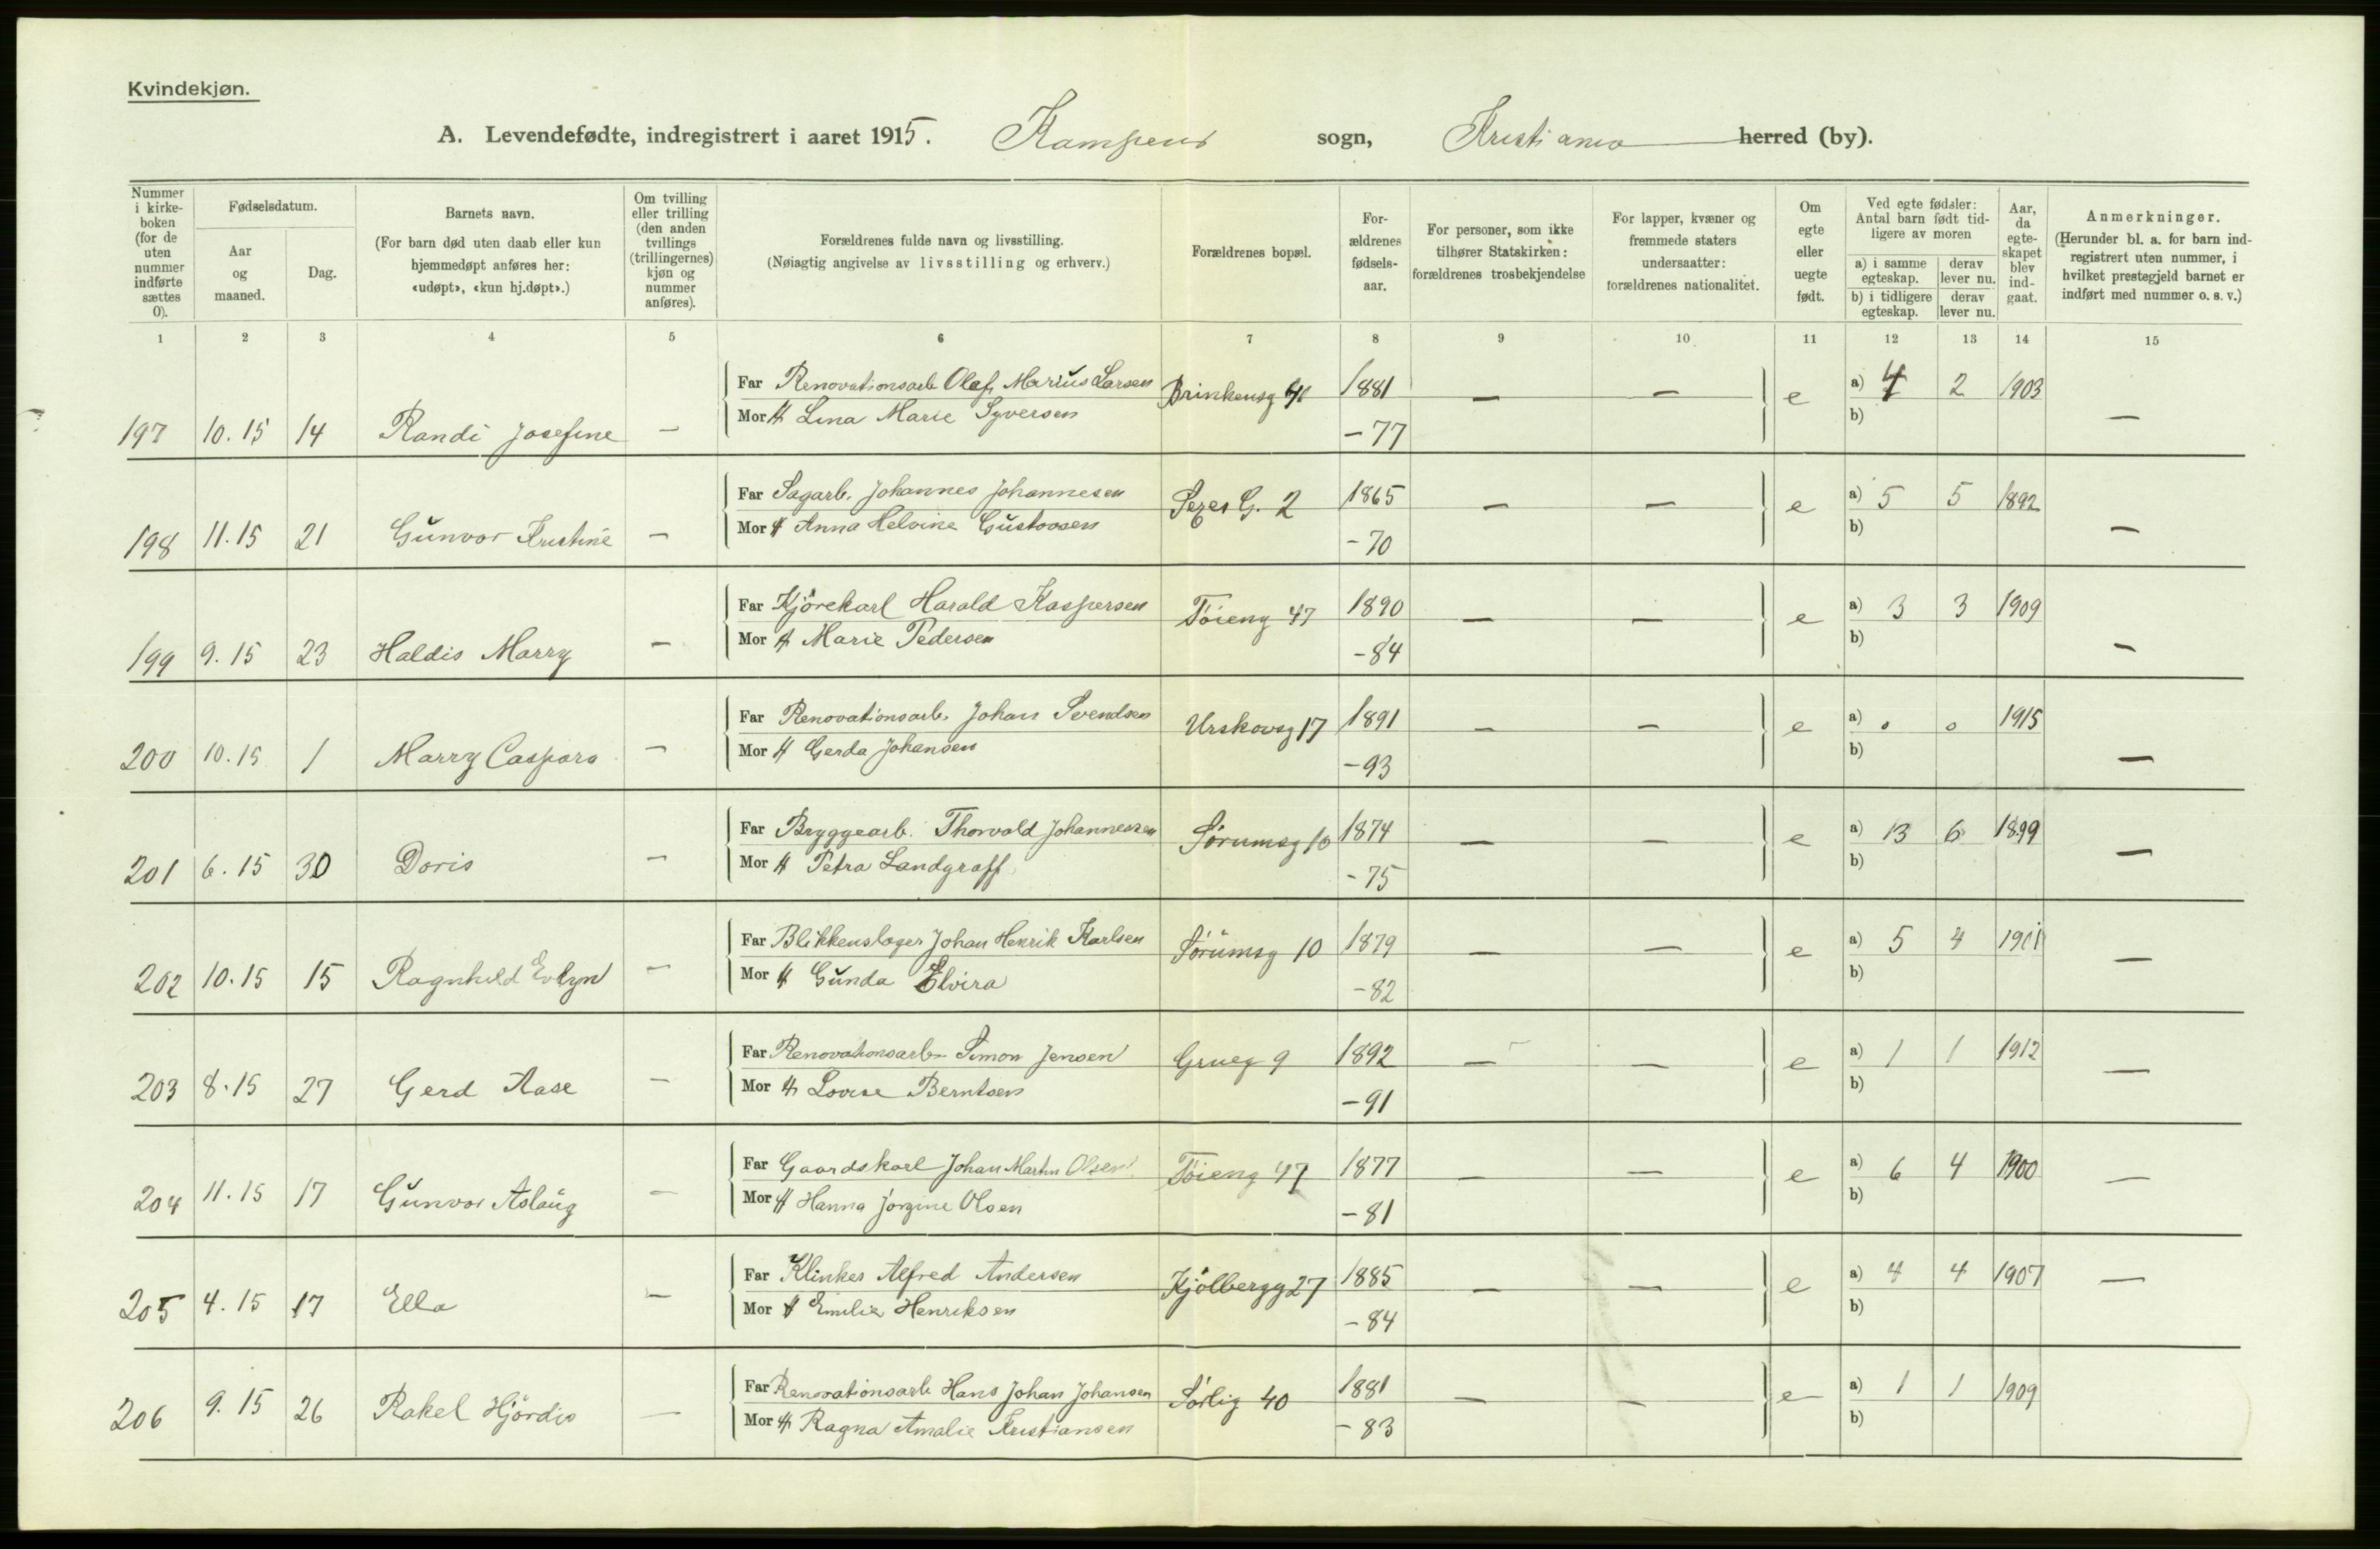 Kvindekjøn.
A. Levendefødte, indregistrert i aaret 1915. Kampens sogn, Kristiania herred (by).
Nummer i kirkeboken (for de uten nummer indførte sættes 0).
Fødselsdatum.
Aar og maaned.
Dag.
Barnets navn.
(For barn død uten daab eller kun hjemmedøpt anføres her: «udøpt», «kun hj.døpt».)
Om tvilling eller trilling (den anden tvillings (trillingernes) kjøn og nummer anføres).
Forældrenes fulde navn og livsstilling.
(Nøiagtig angivelse av livsstilling og erhverv.)
Forældrenes bopæl.
Forældrenes fødselsaar.
For personer, som ikke tilhører Statskirken: forældrenes trosbekjendelse
For lapper, kvæner og fremmede staters undersaatter: forældrenes nationalitet.
Om egte eller uegte født.
Ved egte fødsler: Antal barn født tidligere av moren
a) i samme egteskap. derav lever nu.
b) i tidligere egteskap. derav lever nu.
Aar, da egteskapet blev indgaat.
Anmerkninger.
(Herunder bl. a. for barn indregistrert uten nummer, i hvilket prestegjeld barnet er indført med nummer o. s. v.)
1 2 3 4 5 6 7 8 9 10 11 12 13 14 15
Far Renovationsarb. Olaf Marius Larsen Brinkensg 41 1881 — — e a) 4 2 1903
197 10.15 14 Randi Josefine — Mor H Lina Marie Syversen -77 b) —
Far Sagarb. Johannes Johannesen G. 2 1865 — — e a) 5 5 1892
198 11.15 21 Gunvor Kristine — Mor H Anna Helvine Gustavsen -70 b) —
Far Kjörekarl Harald Kaspersen Töieng 47 1890 — — e a) 3 3 1909
199 9.15 23 Haldis Marry — Mor H Marie Pedersen -84 b) —
Far Renovationsarb. Johan Svendsen Urskovsg 17 1891 — — e a) 0 0 1915
200 10.15 1 Marry Caspara — Mor H Gerda Johansen -93 b) —
Far Bryggearb. Thorvald Johannessen Sörumsg 10 1874 — — e a) 13 6 1899
201 6.15 30 Doris — Mor H Petra Landgraff -75 b) —
Far Blikkenslager Johan Henrik Karlsen Sörumsg 10 1879 — — e a) 5 4 1901
202 10.15 15 Ragnhild Evelyn — Mor H Gunda Elvira -82 b) —
Far Renovationsarb. Simon Jensen Grueg 9 1892 — — e a) 1 1 1912
203 8.15 27 Gerd Aase — Mor H Lovise Berntsen -91 b) —
Far Gaardskarl Johan Martin Olsen Töieng 47 1877 — — e a) 6 4 1900
204 11.15 17 Gunvor Aslaug — Mor H Hanna Jörgine Olsen -81 b) —
Far Klinker Alfred Andersen Kjölbergg 27 1885 — — e a) 4 4 1907 —
205 4.15 17 Ella — Mor H Emilie Henriksen -84 b)
Far Renovationsarb Hans Johan Johansen Sörlig 40 1881 — — e a) 1 1 1909
206 9.15 26 Rakel Hjördis — Mor H Ragna Amalie Kristiansen -83 b)